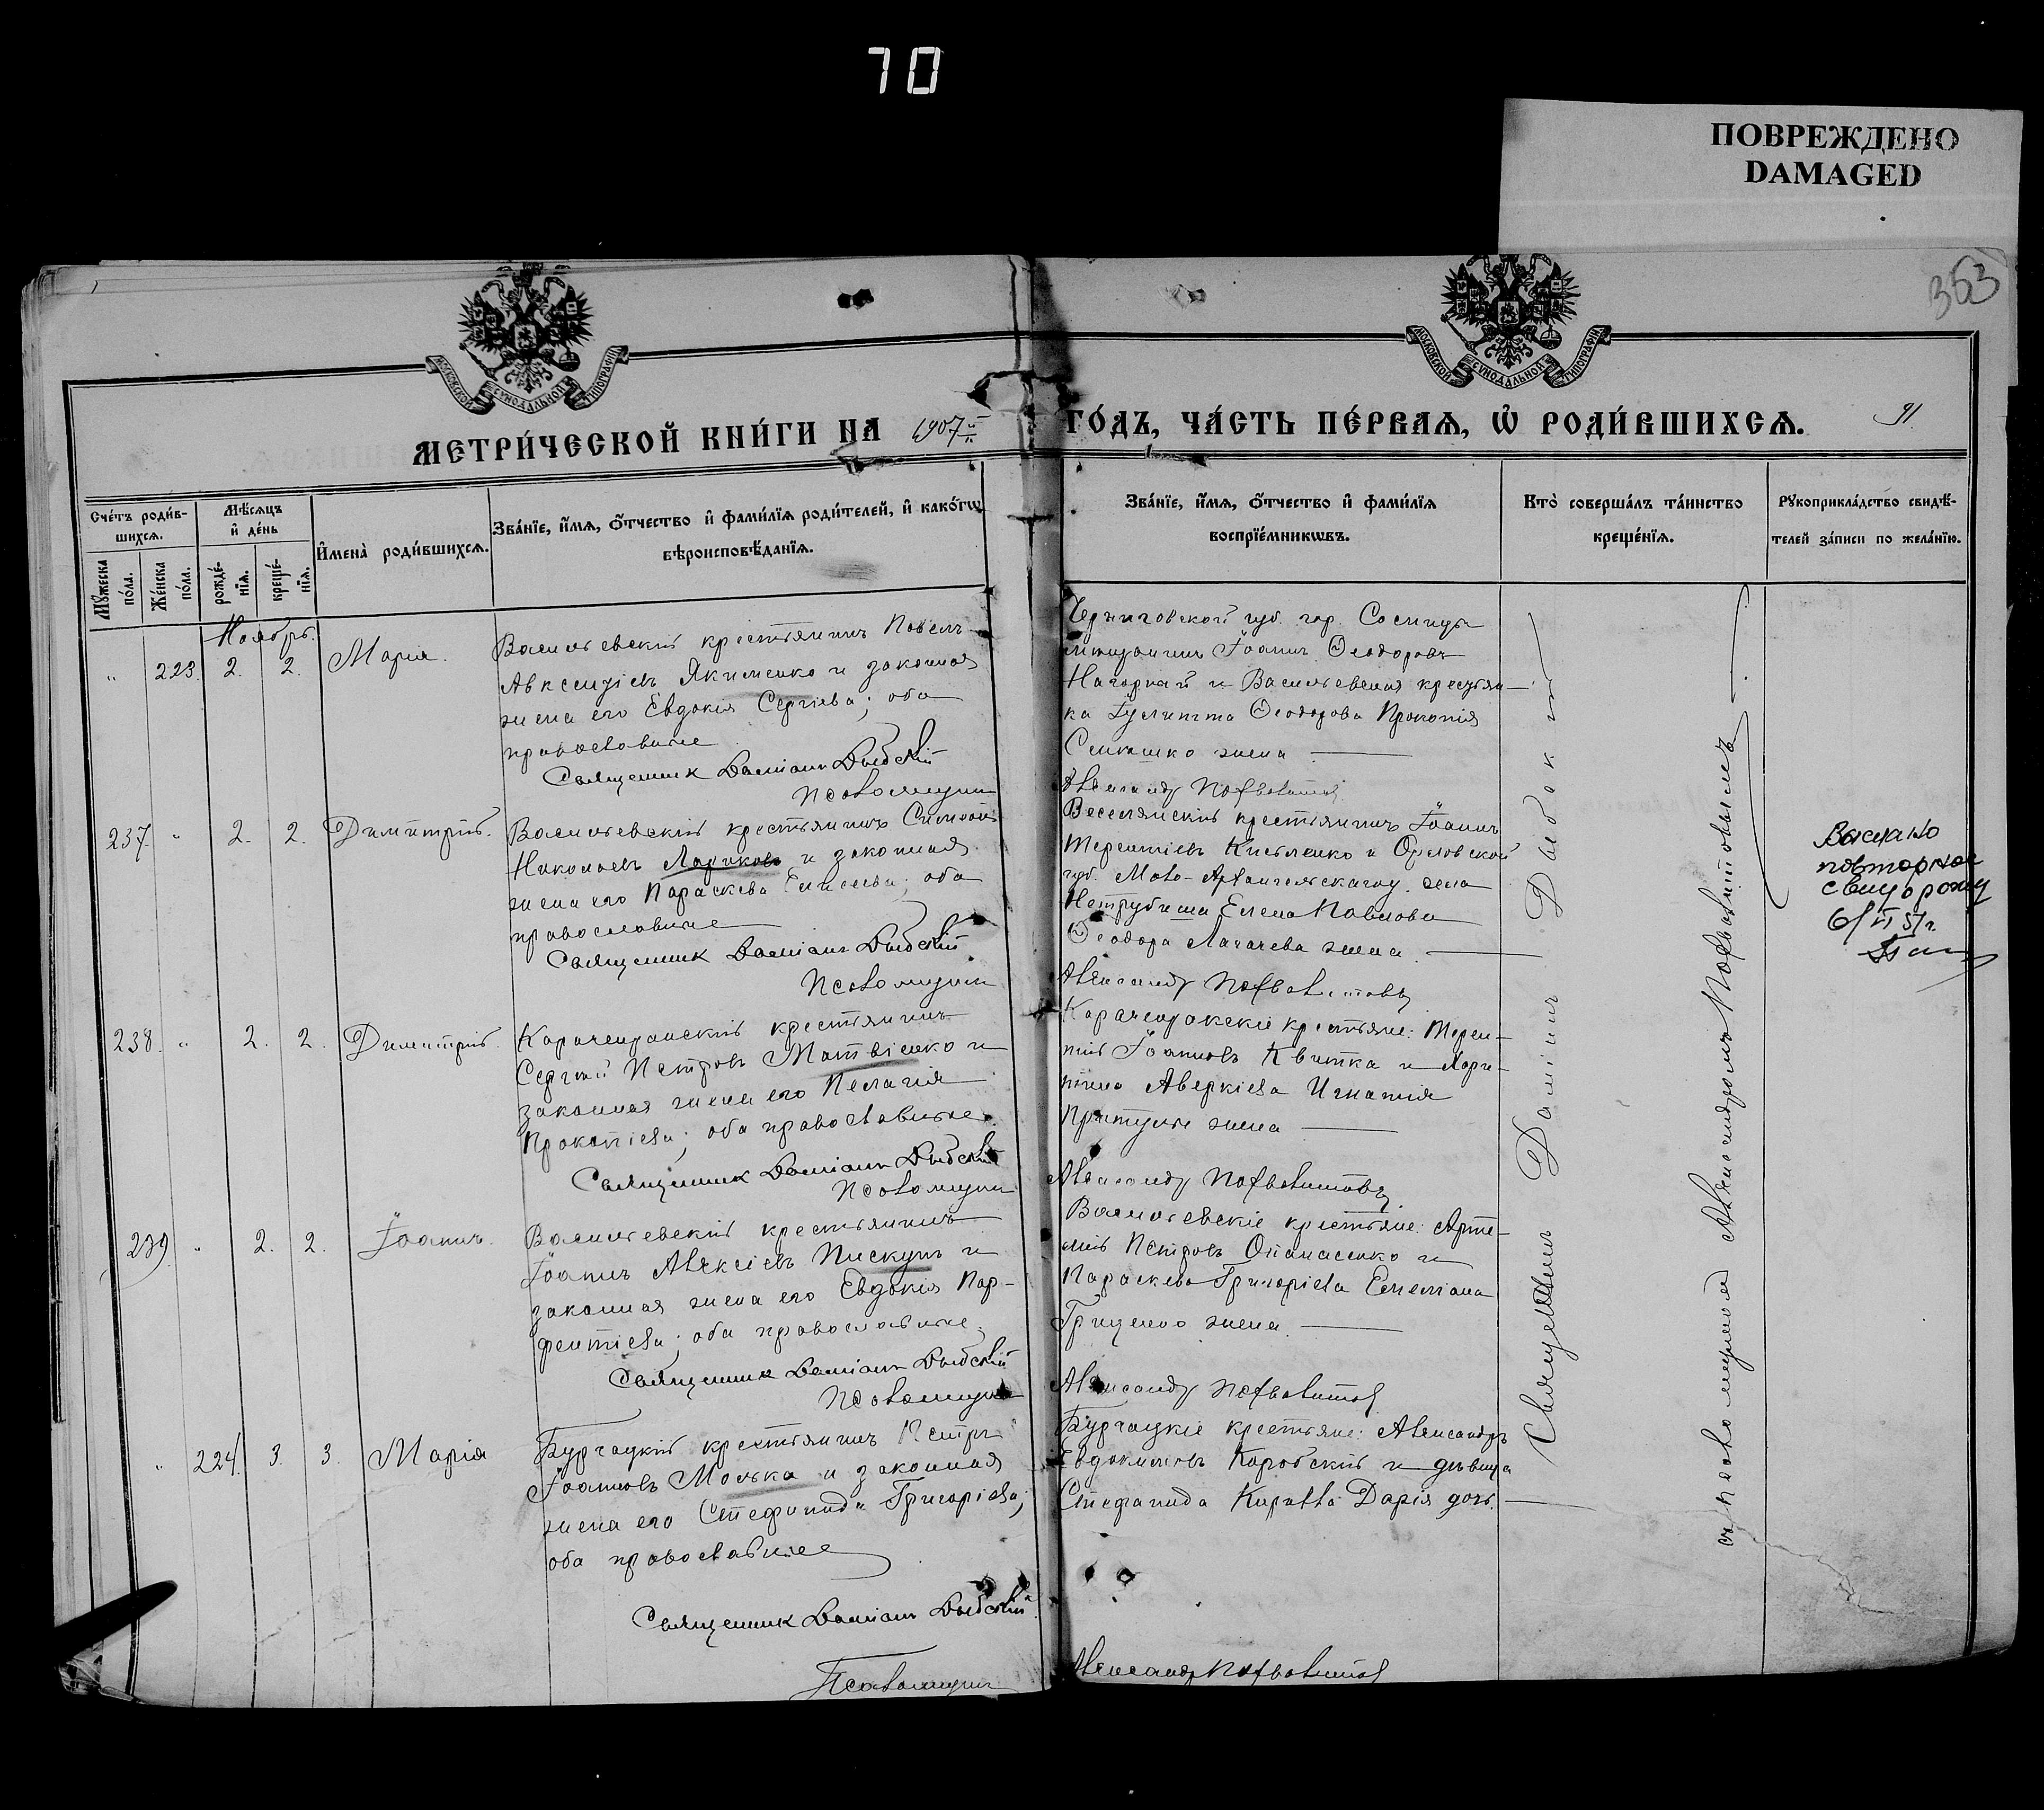 70
ПОВРЕЖДЕНО
DAMAGED
353
МОСКОВСКОЙ СѴНОДАЛЬНОЙ ТИПОГРАФІИ
МОСКОВСКОЙ СѴНОДАЛЬНОЙ ТИПОГРАФІИ
МЕТРИ́ЧЕСКОЙ КНИ́ГИ НА 1907й ГО́ДЪ, ЧА́СТЬ ПЕ́РВАЯ, Ѡ РОДИ́ВШИХСЯ.
91
Сче́тъ роди́в-
шихся.
Мѣ́сяцъ
и҆ де́нь
Му́жеска по́ла.
Же́нска по́ла.
рожде́-
нїя.
креще́-
нїя.
И҆мена̀ роди́вшихся.
Зва́нїе, и҆́мя, ѻ҆́тчество и҆ фами́лїя роди́телей, и҆ како́гѡ
вѣроисповѣ́данїя.
Зва́нїе, и҆́мя, ѻ҆́тчество и҆ фами́лїя
воспрїе́мникѡвъ.
Кто̀ соверша́лъ та́инство
креще́нїя.
Рꙋкоприкла́дство свидѣ́-
телей за́писи по жела́нїю.
Ноябрь.
" 223. 2. 2. Марія.
Васильевскій крестьянинъ Павелъ
Авксентіевъ Якименко и законная
жена его Евдокія Сергіева; оба
православные
Священник Дамианъ Дыбскій
Псаломщик
Черниговской губ. гор. Сосницы
мещанинъ Іоаннъ Ѳеодоровъ
Нагорный и Васильевская крестьян-
ка Гликерія Ѳеодорова Прокопія
жена
Александр
237. " 2. 2. Димитрій.
Васильевскій крестьянинъ Симеонъ
Николаевъ Лариковъ и законная
жена его Параскева Елисеева; оба
православные
Священник Дамианъ Дыбскій
Псаломщик
Веселянскій крестьянинъ Іоаннъ
Терентіевъ Кисленко и Орловской
губ. Мало-Архангельскаго у. села
Елена Павлова
Ѳеодора Лагачева жена.
Александр
238. " 2. 2. Димитрій.
крестьянинъ
Сергій Петровъ Матвіенко и
законная жена его Пелагія
Прокопіева; оба православные.
Священник Дамианъ Дыбскій
Псаломщик
крестьяне: Терен-
тій Іоанновъ Квитка и Хари-
тина Аверкіева Игнатія
Притулы жена
Александр
239. " 2. 2. Іоаннъ.
Васильевскій крестьянинъ
Іоаннъ Алексіевъ Пискунъ и
законная жена его Евдокія Пар-
фентіева; оба православные.
Священник Дамианъ Дыбскій
Псаломщик
Васильевскіе крестьяне: Арте-
мій Петровъ Опанасенко и
Параскева Григоріева Емеліана
Гриценко жена.
Александр
" 224. 3. 3. Марія
Бурчацкій крестьянинъ Петръ
Іоанновъ Молька и законная
жена его Стефанида Григоріева;
оба православные
Священник Дамианъ Дыбскій
Псаломщик
Бурчацкіе крестьяне: Александръ
Евдокимовъ Коробскій и дѣвица
Стефанида Дарія дочь.
Александр
Священникъ Даміанъ Дыбскій
съ псаломщикомъ Александромъ
Выдано
повторное
свид о рожд
6/VI 51г.